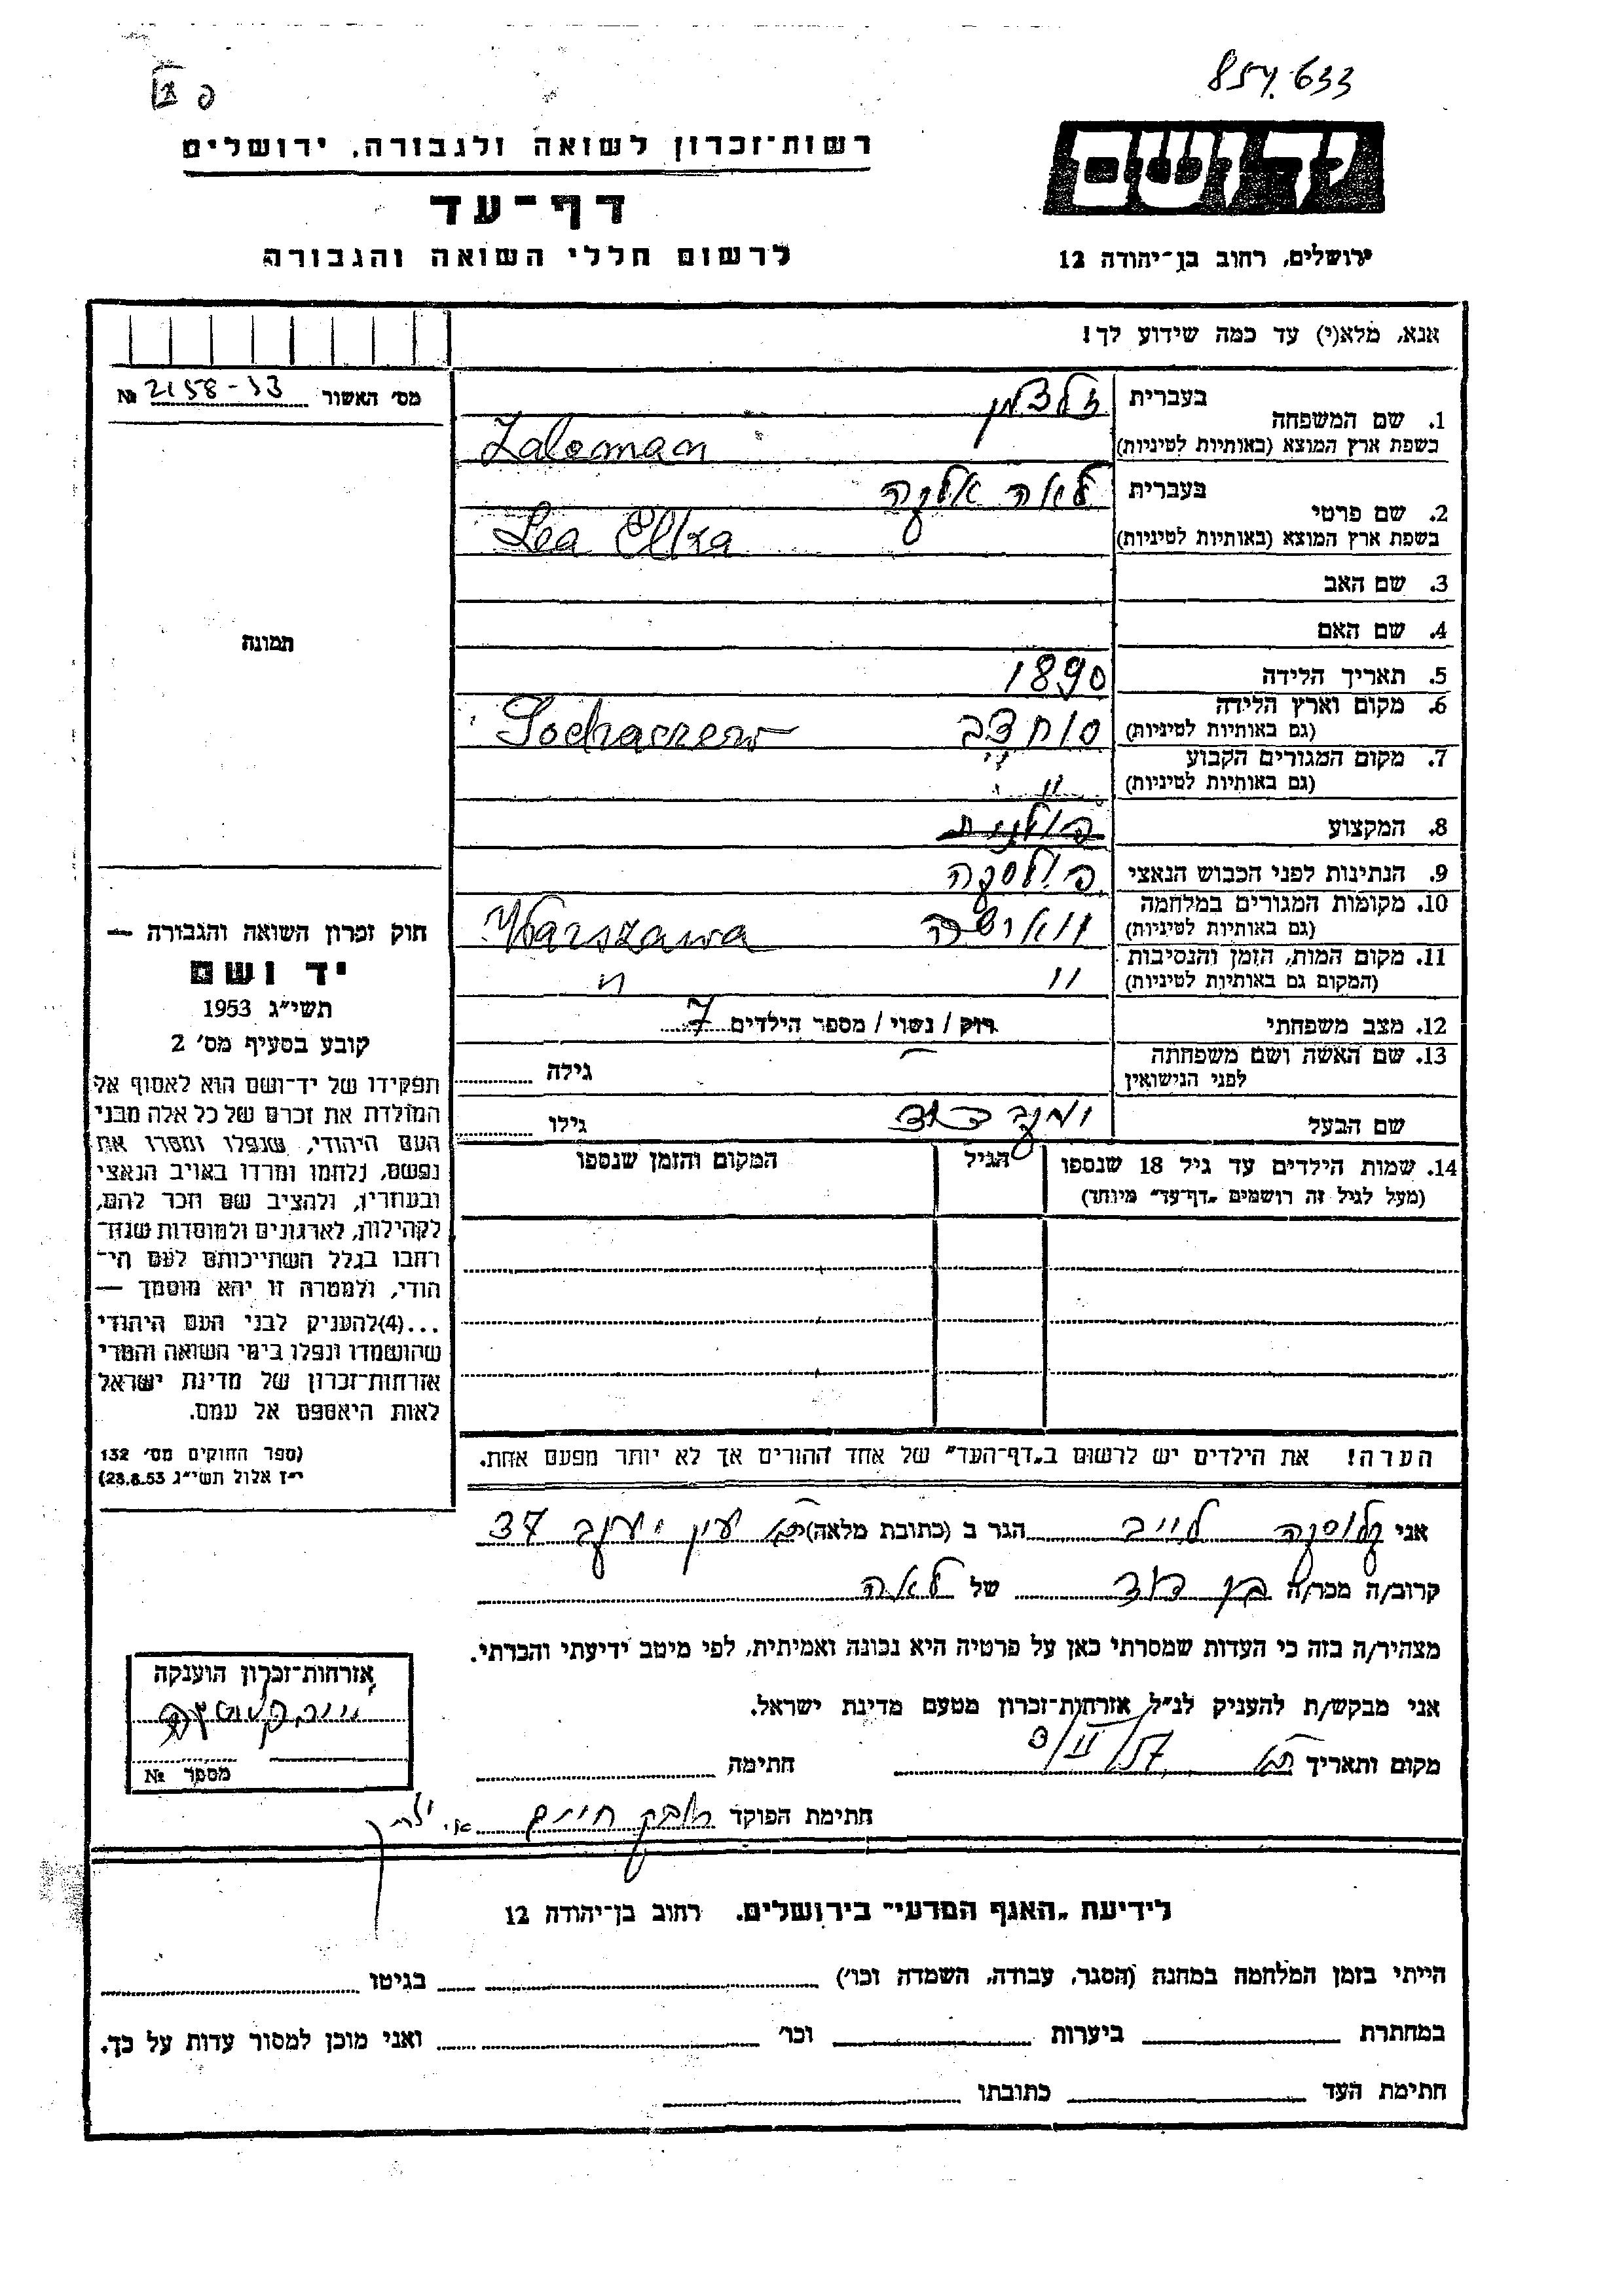 857.633
רשות־זכרון לשואה ולגבורה, ירושלים
יד ושם
דף־עד
ירושלים, רחוב בן־יהודה 12
לרשום חללי השואה והגבורה
אנא, מלא(י) עד כמה שידוע לך!
מס׳ האשור № 2158-33
1. שם המשפחה
בעברית זלצמן
בשפת ארץ המוצא (באותיות לטיניות) Zalcman
2. שם פרטי
בעברית לאה אלקה
בשפת ארץ המוצא (באותיות לטיניות) Lea Elka
3. שם האב
4. שם האם
תמונה
5. תאריך הלידה 1890
6. מקום וארץ הלידה
(גם באותיות לטיניות) סוחצב Sochaczew
7. מקום המגורים הקבוע
(גם באותיות לטיניות) "
8. המקצוע
9. הנתינות לפני הכבוש הנאצי פולסקה
10. מקומות המגורים במלחמה
(גם באותיות לטיניות) ווארשה Warszawa
11. מקום המות, הזמן והנסיבות
(המקום גם באותיות לטיניות) " "
12. מצב משפחתי רוק / נשוי / מספר הילדים 7
13. שם האשה ושם משפחתה
לפני הנישואין גילה
שם הבעל דוד גילו
14. שמות הילדים עד גיל 18 שנספו הגיל המקום והזמן שנספו
(מעל לגיל זה רושמים „דף־עד״ מיוחד)
הערה! את הילדים יש לרשום ב„דף־העד״ של אחד ההורים אך לא יותר מפעם אחת.
חוק זכרון השואה והגבורה —
יד ושם
תשי״ג 1953
קובע בסעיף מס׳ 2
תפקידו של יד־ושם הוא לאסוף אל
המולדת את זכרם של כל אלה מבני
העם היהודי, שנפלו ומסרו את
נפשם, נלחמו ומרדו באויב הנאצי
ובעוזריו, ולהציב שם וזכר להם,
לקהילות, לארגונים ולמוסדות שנח־
רבו בגלל השתייכותם לעם הי־
הודי, ולמטרה זו יהא מוסמך —
...(4)להעניק לבני העם היהודי
שהושמדו ונפלו בימי השואה והמרי
אזרחות־זכרון של מדינת ישראל
לאות היאספם אל עמם.
(ספר החוקים מס׳ 132
י״ז אלול תשי״ג 28.8.53)
אני לייב הגר ב (כתובת מלאה) עין יעקב 37
קרוב/ה מכר/ה בן דוד של לאה
מצהיר/ה בזה כי העדות שמסרתי כאן על פרטיה היא נכונה ואמיתית, לפי מיטב ידיעתי והכרתי.
אני מבקש/ת להעניק לנ״ל אזרחות־זכרון מטעם מדינת ישראל.
מקום ותאריך 3/II/57 חתימה
חתימת הפוקד חיים
אזרחות־זכרון הוענקה
מספר №
לידיעת „האגף המדעי״ בירושלים. רחוב בן־יהודה 12
הייתי בזמן המלחמה במחנה (הסגר, עבודה, השמדה וכו׳) בגיטו
במחתרת ביערות וכו׳ ואני מוכן למסור עדות על כך.
חתימת העד כתובתו